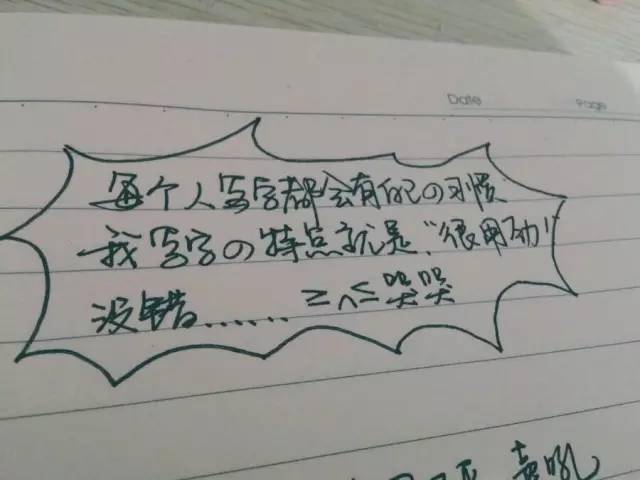 Date Page
每个人写字都会有自己の习惯
我写字の特点就是“很用力”
没错...... ≥﹏≤哭哭